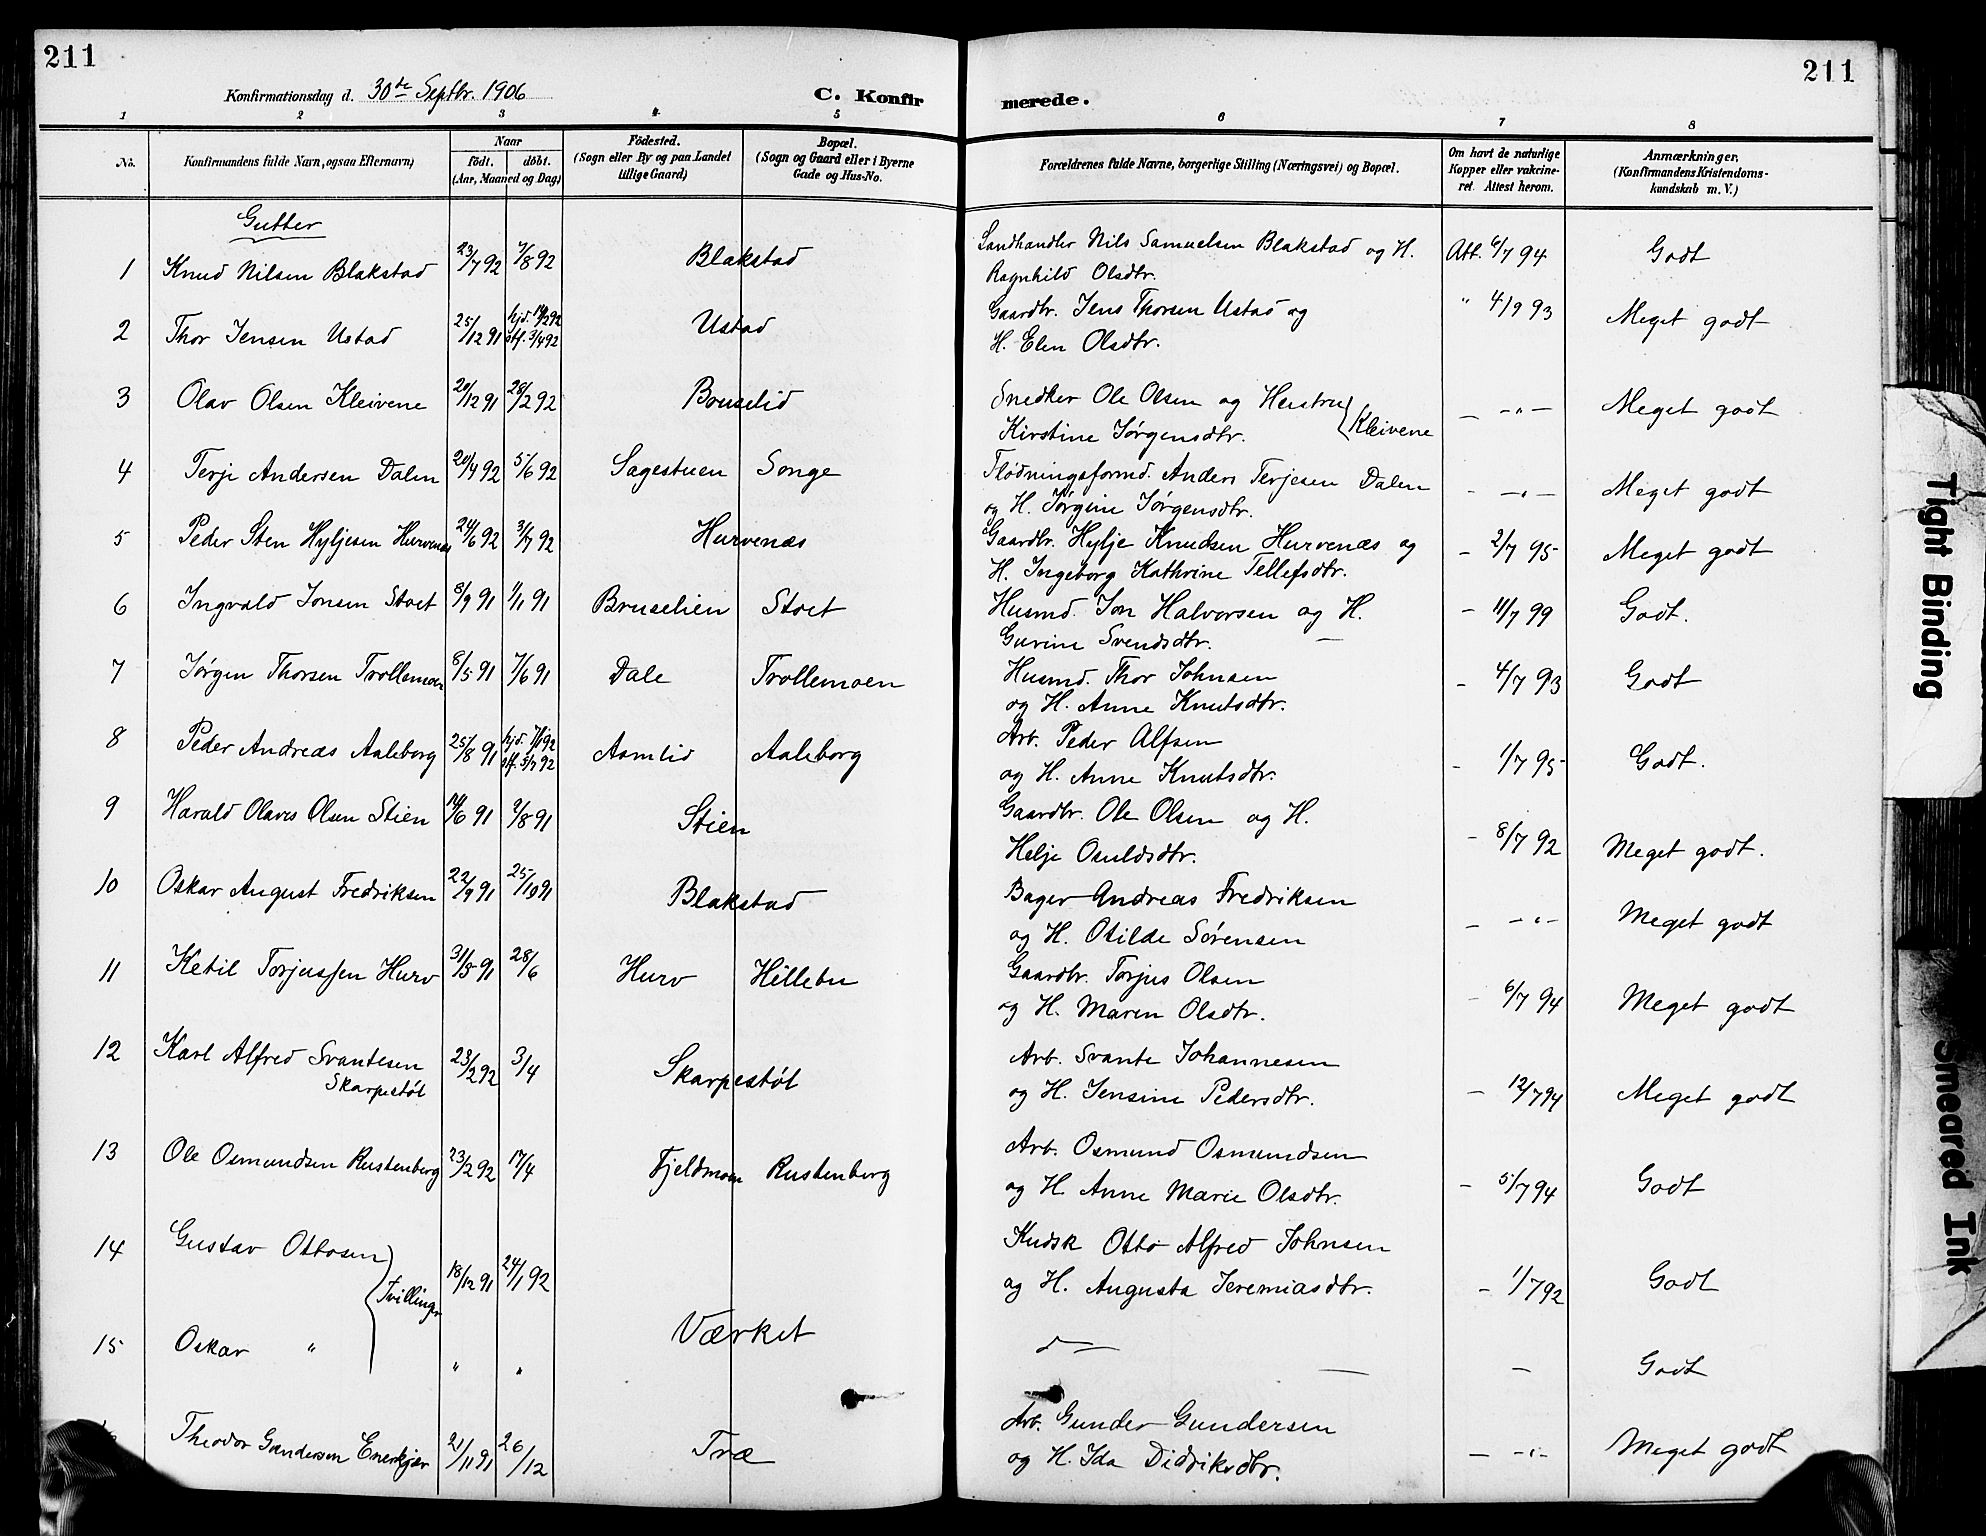 211
211
Konfirmationsdag d. 30te Septbr. 1906
C. Konfir
merede.
1 2 3 4 5 6 7 8
No. Konfirmandens fulde Navn, ogsaa Efternavn) Naar født. døbt. (Aar, Maaned og Dag) Fødested. (Sogn eller By og paa Landet tillige Gaard) Bopæl. (Sogn og Gaard eller i Byerne Gade og Hus-No. Forældrenes fulde Navne, borgerlige Stilling (Næringsvei) og Bopæl. Om havt de naturlige Kopper eller vakcineret. Attest herom. Anmærkninger. (Konfirmandens Kristendomskundskab m. V.)
Gutter
1 Knud Nilsen Blakstad 23/7 92 7/8 92 Blakstad Landhandler Nils Samuelsen Blakstad og H. Att. 6/7 94 Godt
Ragnhild Olsdtr.
2 Thor Jensen Ustad 25/12 91 hjd. 14/2 92 off. 3/4 92 Ustad Gaardbr. Jens Thorsen Ustad og " 4/9 93 Meget godt
H. Elen Olsdtr.
3 Olav Olsen Kleivene 20/12 91 28/2 92 Bouselid Snedker Ole Olsen og Hustru Kleivene — -"- Meget godt
Kirstine Jørgensdtr.
4 Terje Andersen Dalen 20/4 92 5/6 92 Sagestuen Songe Flødningsformd. Anders Terjesen Dalen - -"- Meget godt
og H. Jørgine Jørgensdtr.
5 Peder Sten Hyljesen Hurvenæs 24/6 92 3/7 92 Hurvenæs Gaardbr. Hylje Knudsen Hurvenæs og - 2/7 95 Meget godt
H. Ingeborg Kathrine Tellefsdtr.
6 Ingvald Jonsen Stoet 8/9 91 1/11 91 Bruselien Stoet Husmd. Jon Halvorsen og H. - 11/7 99 Godt.
Gurine Svendsdtr.
7 Jørgen Thorsen Trollemoen 8/5 91 7/6 91 Dale Trollemoen Husmd. Thor Johnsen - 4/7 93 Godt
og H. Anne Knutsdtr.
8 Peder Andreas Aaleborg 25/8 91 hjd. 7/1 92 off. 3/7 92 Aamlid Aaleborg Arb. Peder Alfsen - 1/7 95 Godt.
og H. Anne Knutsdtr.
9 Harald Olaves Olsen Stien 14/6 91 2/8 91 Stien Gaardbr. Ole Olsen og H. - 8/7 92 Meget godt.
Helje Osuldsdtr.
10 Oskar August Fredriksen 22/9 91 25/10 91 Blakstad Bager Andreas Fredriksen - -"- Meget godt
og H. Otilde Sørensen
11 Ketil Torjussen Hurv 31/5 91 28/6 Hurv Hillebu Gaardbr. Torjus Olsen - 6/7 94 Meget godt
og H. Maren Olsdtr.
12 Karl Alfred Svantesen 23/2 92 3/4 Skarpestøl Arb. Svante Johannesen - 12/7 94 Meget godt
Skarpestøl og H. Jensine Pedersdtr.
13 Ole Osmundsen Rustenberg 23/2 92 17/4 Fjeldmoen Rustenberg Arb. Osmund Osmundsen - 5/7 94 Godt
og H Anne Marie Olsdtr.
14 Gustav Ottosen Tvillinger 18/12 91 24/1 92 Kudsk Otto Alfred Johnsen - 1/7 92 Godt
og H. Augusta Jeremiasdtr.
15 Oskar " " " Værket d — — Godt
Theodor Gundersen Enerkjær 21/11 91 26/12 Træ Arb. Gunder Gundersen — -"- Meget godt
og H. Ida Didriksdtr.
Tight Binding
Smeared Ink